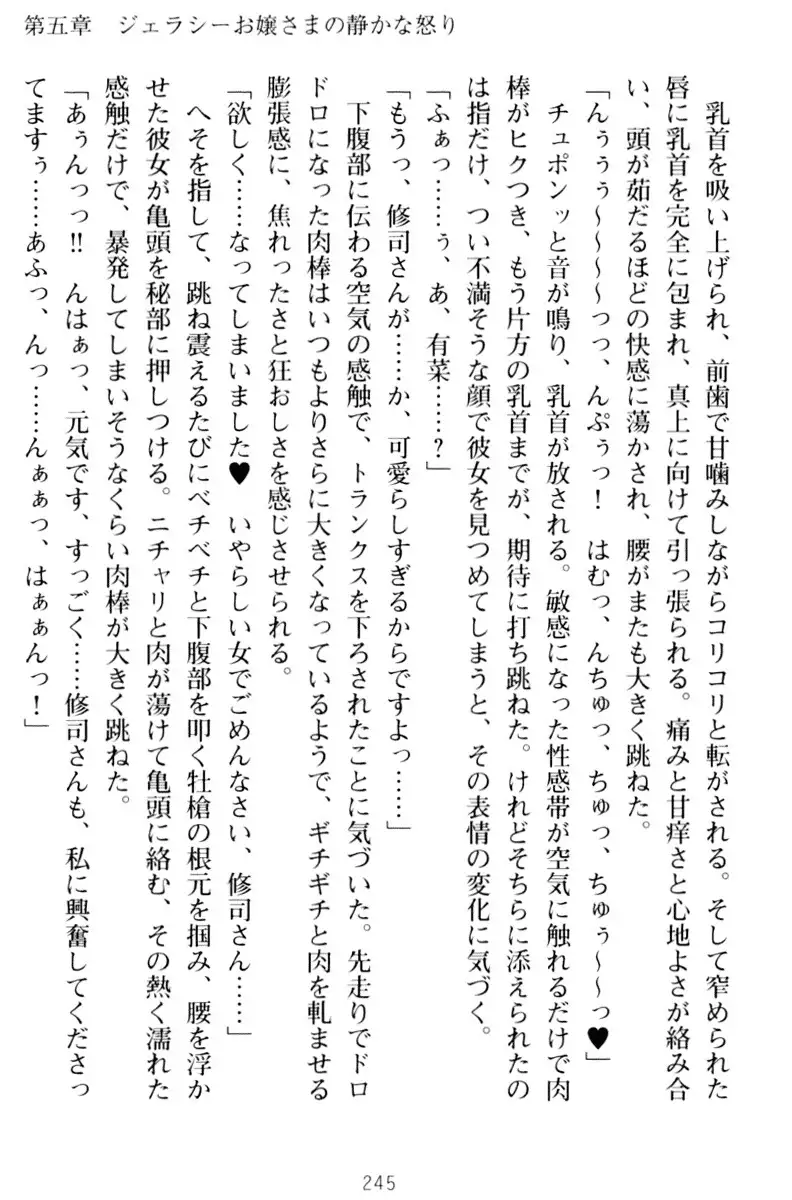 第五章　ジェラシーお嬢さまの静かな怒り
　乳首を吸い上げられ、前歯で甘噛みしながらコリコリと転がされる。そして窄められた
唇に乳首を完全に包まれ、真上に向けて引っ張られる。痛みと甘痒さと心地よさが絡み合
い、頭が茹だるほどの快感に蕩かされ、腰がまたも大きく跳ねた。
「んぅぅぅ～～～～っっ、んぷぅっ！　はむっ、んちゅっ、ちゅっ、ちゅぅ～～っ♥」
　チュポンッと音が鳴り、乳首が放される。敏感になった性感帯が空気に触れるだけで肉
棒がヒクつき、もう片方の乳首までが、期待に打ち跳ねた。けれどそちらに添えられたの
は指だけ、つい不満そうな顔で彼女を見つめてしまうと、その表情の変化に気づく。
「ふぁっ……ぅ、あ、有菜……？」
「もうっ、修司さんが……か、可愛らしすぎるからですよっ……」
　下腹部に伝わる空気の感触で、トランクスを下ろされたことに気づいた。先走りでドロ
ドロになった肉棒はいつもよりさらに大きくなっているようで、ギチギチと肉を軋ませる
膨張感に、焦れったさと狂おしさを感じさせられる。
「欲しく……なってしまいました♥　いやらしい女でごめんなさい、修司さん……」
　へそを指して、跳ね震えるたびにベチベチと下腹部を叩く牡槍の根元を掴み、腰を浮か
せた彼女が亀頭を秘部に押しつける。ニチャリと肉が蕩けて亀頭に絡む、その熱く濡れた
感触だけで、暴発してしまいそうなくらい肉棒が大きく跳ねた。
「あぅんっっ!!　んはぁっ、元気です、すっごく……修司さんも、私に興奮してくださっ
てますぅ……あふっ、んっ……んぁぁっ、はぁぁんっ！」
245